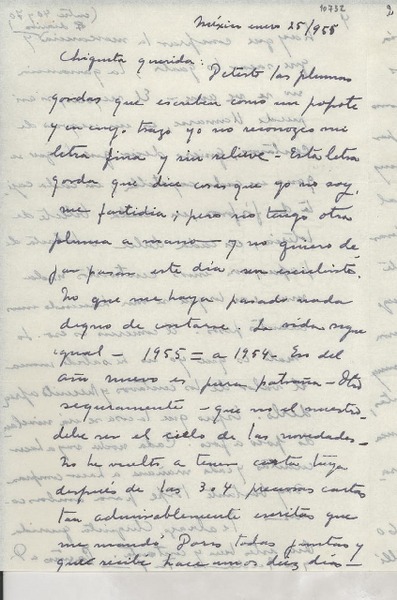 10732
México enero 25/955
Chiquita querida: Detesto las plumas
gordas que escriben como un popote
y en cuyo trazo yo no reconozco mi
letra fina y sin relieve - Esta letra
gorda que dice cosas que yo no soy,
me fastidia; pero no tengo otra
pluma a mano - y no quiero de-
jar pasar este día sin escribirte.
No que me haya pasado nada
digno de contarse. La vida sigue
igual - 1955 = a 1954 - Eso del
año nuevo es pura patraña -
seguramente - que no el nuestro
debe ser el ciclo de las novedades -
No he vuelto a tener carta tuya
después de las 3 o 4 preciosas cartas
tan admirablemente escritas que
me mandó Doris todas juntas y
que recibí hace unos diez días -